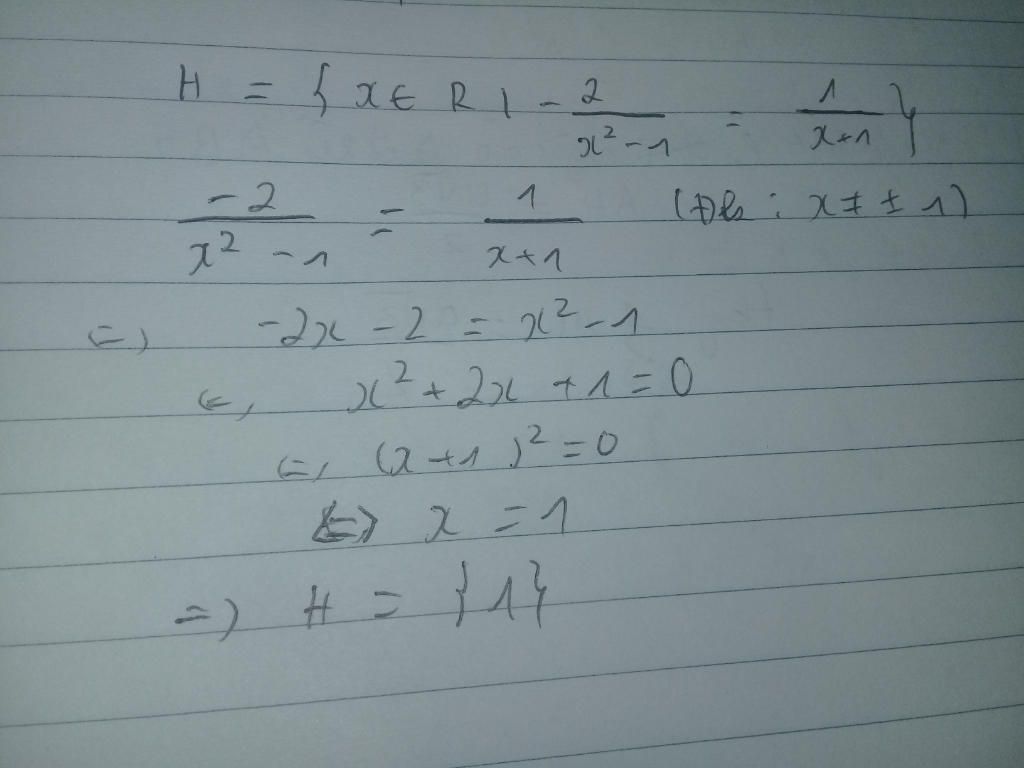 H = { x ∈ R | - 2/(x² - 1) = 1/(x+1) }
-2/(x² - 1) = 1/(x+1) (Đk : x ≠ ± 1)
=) -2x - 2 = x² - 1
<=, x² + 2x + 1 = 0
<=, (x+1)² = 0
<=> x = 1
=) H = {1}